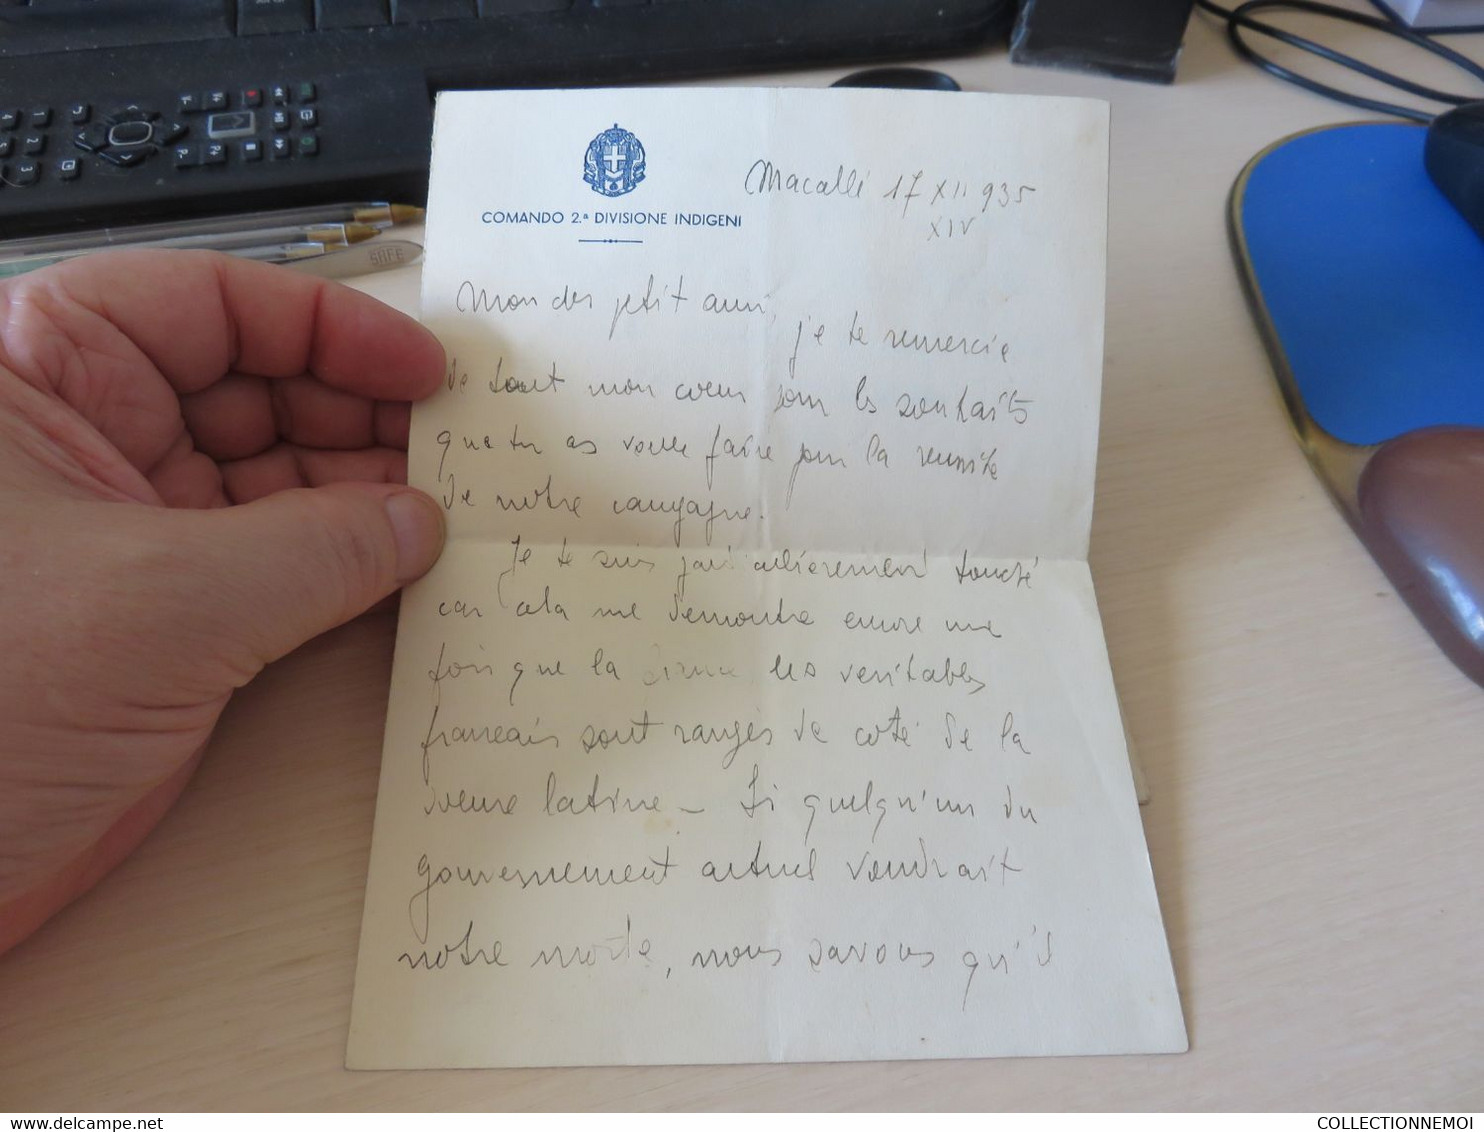 COMANDO 2.ª DIVISIONE INDIGENI
Macallé 17 XII 935
XIV
Mon cher petit ami,
je te remercie
de tout mon coeur pour les souhaits
que tu as voulu faire pour la reussite
de notre campagne.
Je te suis particulièrement touché
car cela me demontre encore une
fois que la les veritables
français sont rangés de coté de la
soeur latine - Si quelqu'un du
gouvernement actuel voudrait
notre morte, nous savons qu'il
SAFE
www.delcampe.net
COLLECTIONNEMOI